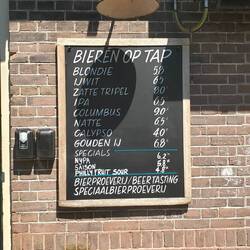 BIEREN OP TAP
BLONDIE 5⁸
IJWIT 6⁵
ZATTE TRIPEL 8⁰
IPA 6⁵
COLUMBUS 9⁰
NATTE 6⁵
CALYPSO 4⁰
GOUDEN IJ 6⁸
SPECIALS
NYPA 6.2°
SAISON
PHILLY FRUIT SOUR 4.8°
BIERPROEVERIJ/BEERTASTING
SPECIAALBIERPROEVERIJ